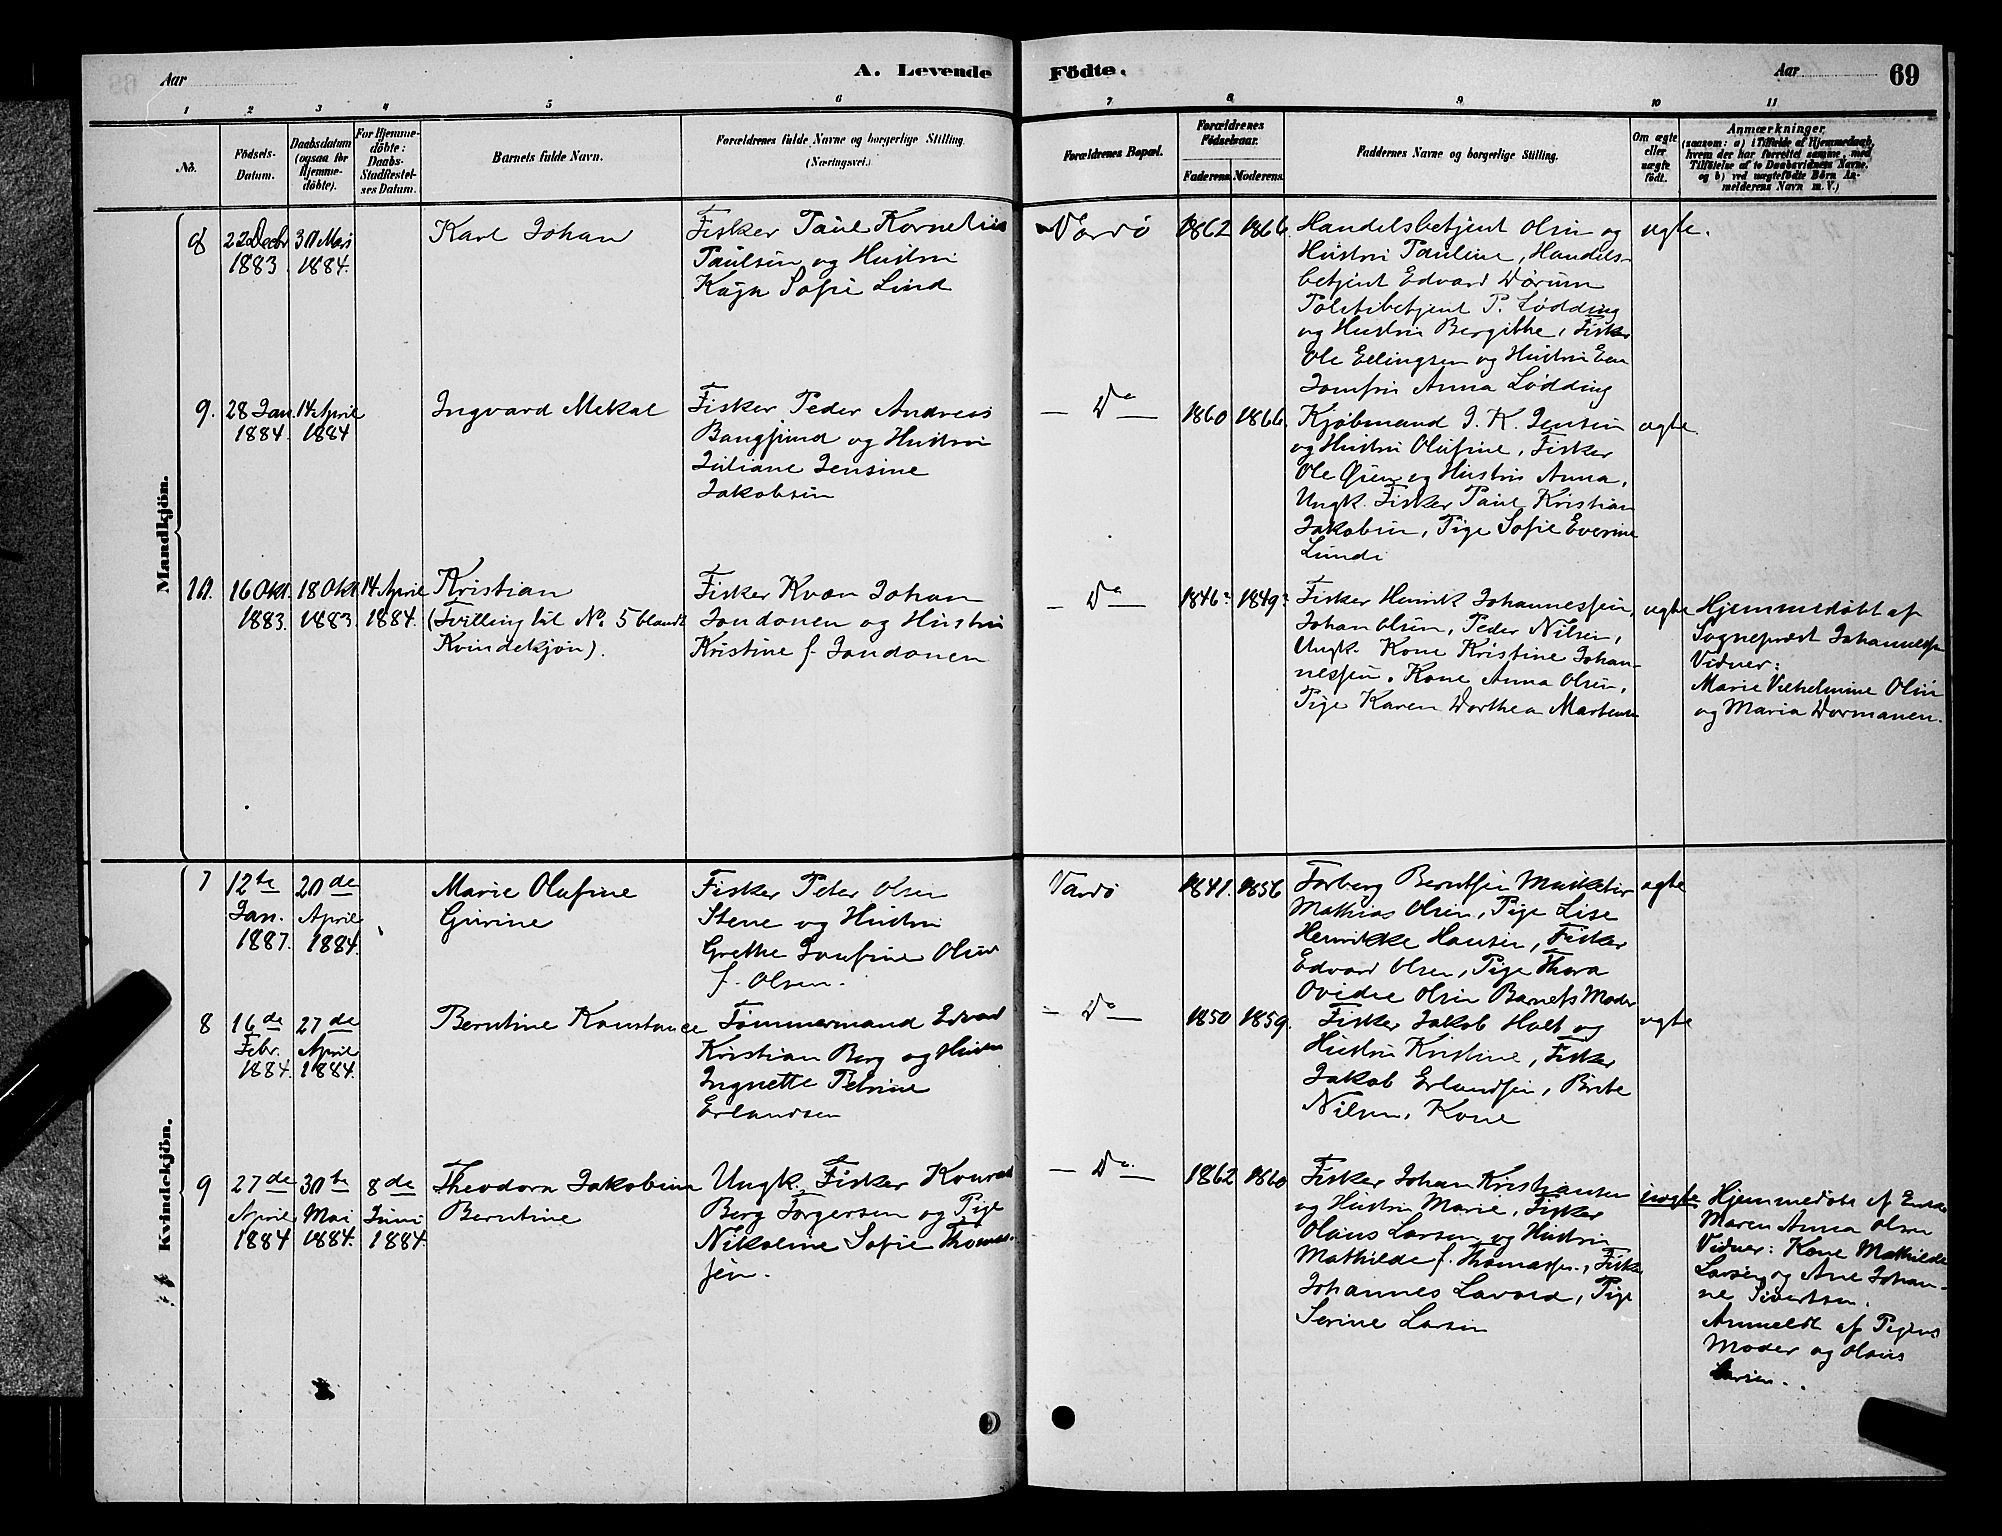 Aar
A. Levende
1 2 3 4 5 6
No.
Födsels-
Datum.
Daabsdatum
(ogsaa for
Hjemme-
döbte).
For Hjemme-
döbte:
Daabs-
Stadfæstel-
ses Datum.
Barnets fulde Navn.
Forældrenes fulde Navne og borgerlige Stilling.
(Næringsvei.)
Mandkjön.
8
22 Decbr
1883
30 Mars
1884.
Karl Johan
Fisker Paul Kornelius
Paulsen og Hustru
Sofie Lind
9.
28 Jan
1884.
14 April
1884
Ingvard Mekal
Fisker Peder Andreas
og Hustru
Juliane Jensine
Jakobsen
10.
16 Okt.
1883.
18 Okt
1883
14 April
1884.
Kristian
(Tvilling til No 5 blandt
Kvindekjøn).
Fisker Kvæn Johan
og Hustru
Kristine f.
Kvindekjön.
7
12te
Jan.
1887.
20de
April
1884.
Marie Olufine
Gurine
Fisker Peter Olsen
Stene og Hustru
Grethe Josefine Olsen
f. Olsen.
8
16de
Febr.
1884.
27de
April
1884.
Berntine Konstance
Tømmermand Edvard
Kristian Berg og Hustru
Ingnette Petrine
Erlandsen
9
27de
April
1884
30te
Mai
1884.
8de
Juni
1884.
Theodora Jakobine
Berntine
Ungk. Fisker Konrad
Berg Torgersen og Pige
Nikoline Sofie Thomas-
sen.
Födte.
Aar
69
7 8 9 10 11
Forældrenes Bopæl.
Forældrenes
Födselsaar.
Faderens. Moderens.
Faddernes Navne og borgerlige Stilling.
Om ægte
eller
uægte
födt.
Anmærkninger,
(saasom: a) i Tilfælde af Hjemmedaab,
hvem der har forrettet samme, med
Tilföielse af to Daabsvidners Navne.
og b) ved uægtefödte Börn An-
melderens Navn m. V.)
Vardø
1862 1866.
Handelsbetjent Olsen og
Hustru Pauline, Handels-
betjent Edvard Dørum
Politibetjent P. Lødding
og Hustru Bergithe, Fisker
Ole Ellingsen og Hustru
Jomfru Anna Lødding
ægte.
— Do —
1860 1866.
Kjøbmand J. K. Jensen
og Hustru Olufine, Fisker
Ole Øien og Hustru Anna,
Ungk. Fisker Paul Kristian
Jakobsen, Pige Sofie Everine
Lunde
ægte.
— Do —
1846? 1849?
Fisker Henrik Johannessen,
Johan Olsen, Peder Nilsen,
Ungk. Kone Kristine Johan-
nessen, Kone Anna Olsen,
Pige Karen Dorthea Martensen
ægte
Hjemmedøbt af
Sogneprest Johannessen
Vidner:
Marie Vilhelmine Olsen
og Maria Dormanen.
Vardø
1841. 1856
Torberg Berntsen
Mathias Olsen, Pige Lise
Henrikke Hansen, Fisker
Edvard Olsen, Pige Thora
Ovidie Olsen Barnets Moder
ægte
— Do —
1850 1859.
Fisker Jakob Holt og
Hustru Kristine, Fisker
Jakob Erlandsen, Brite
Nilsen, Kone
ægte
— Do. —
1862 1860
Fisker Johan Kristiansen
og Hustru Marie, Fisker
Olaus Larsen og Hustru
Mathilde f. Thomassen., Fisker
Johannes, Pige
Serine Larsen
uægte
Hjemmedøbt af Enke
Maren Anna Olsen
Vidner: Kone Mathilde
Larsen og Ane Johan-
ne Sivertsen.
Anmeldt af Pigens
Moder og Olaus
Larsen.